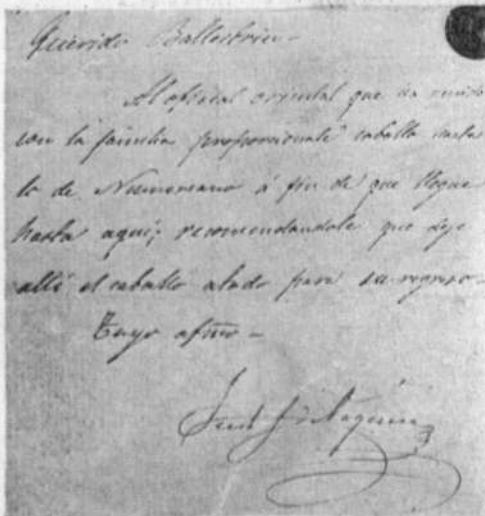 Querido Ballestrin.
Al oficial oriental que ha venido
con la familia proporcionale caballo hasta
lo de á fin de que llegue
hasta aqui; recomendandole que deje
allí el caballo atado para su regreso.
Tuyo afmo.